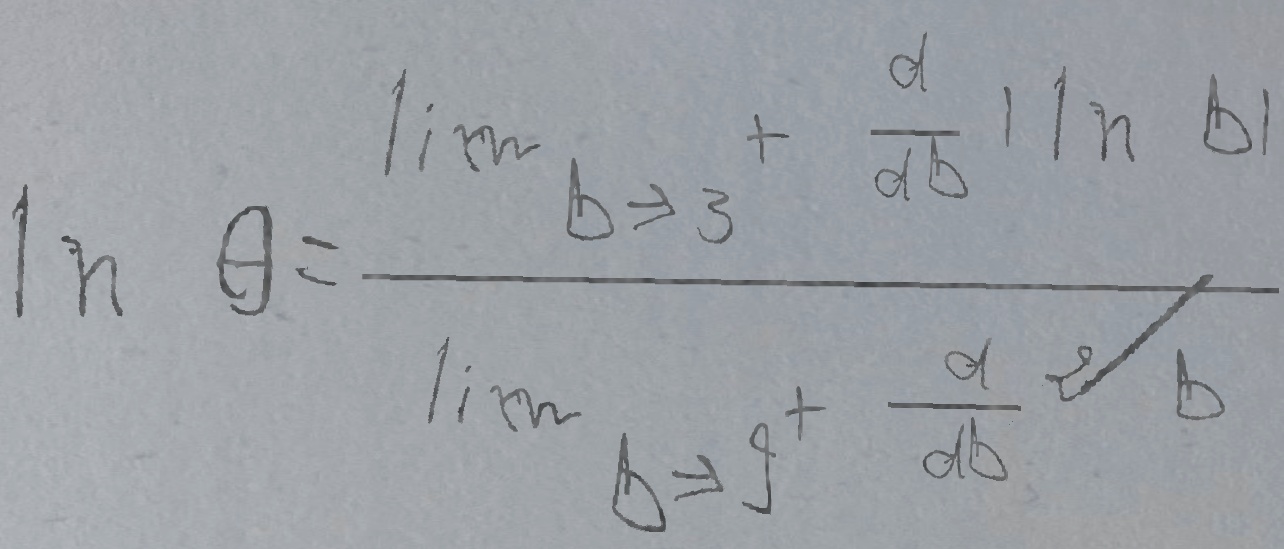 ln θ = \frac{\lim_{b→3^+} \frac{d}{db} |ln b|}{\lim_{b→9^+} \frac{d}{db} \sqrt[2]{b}}